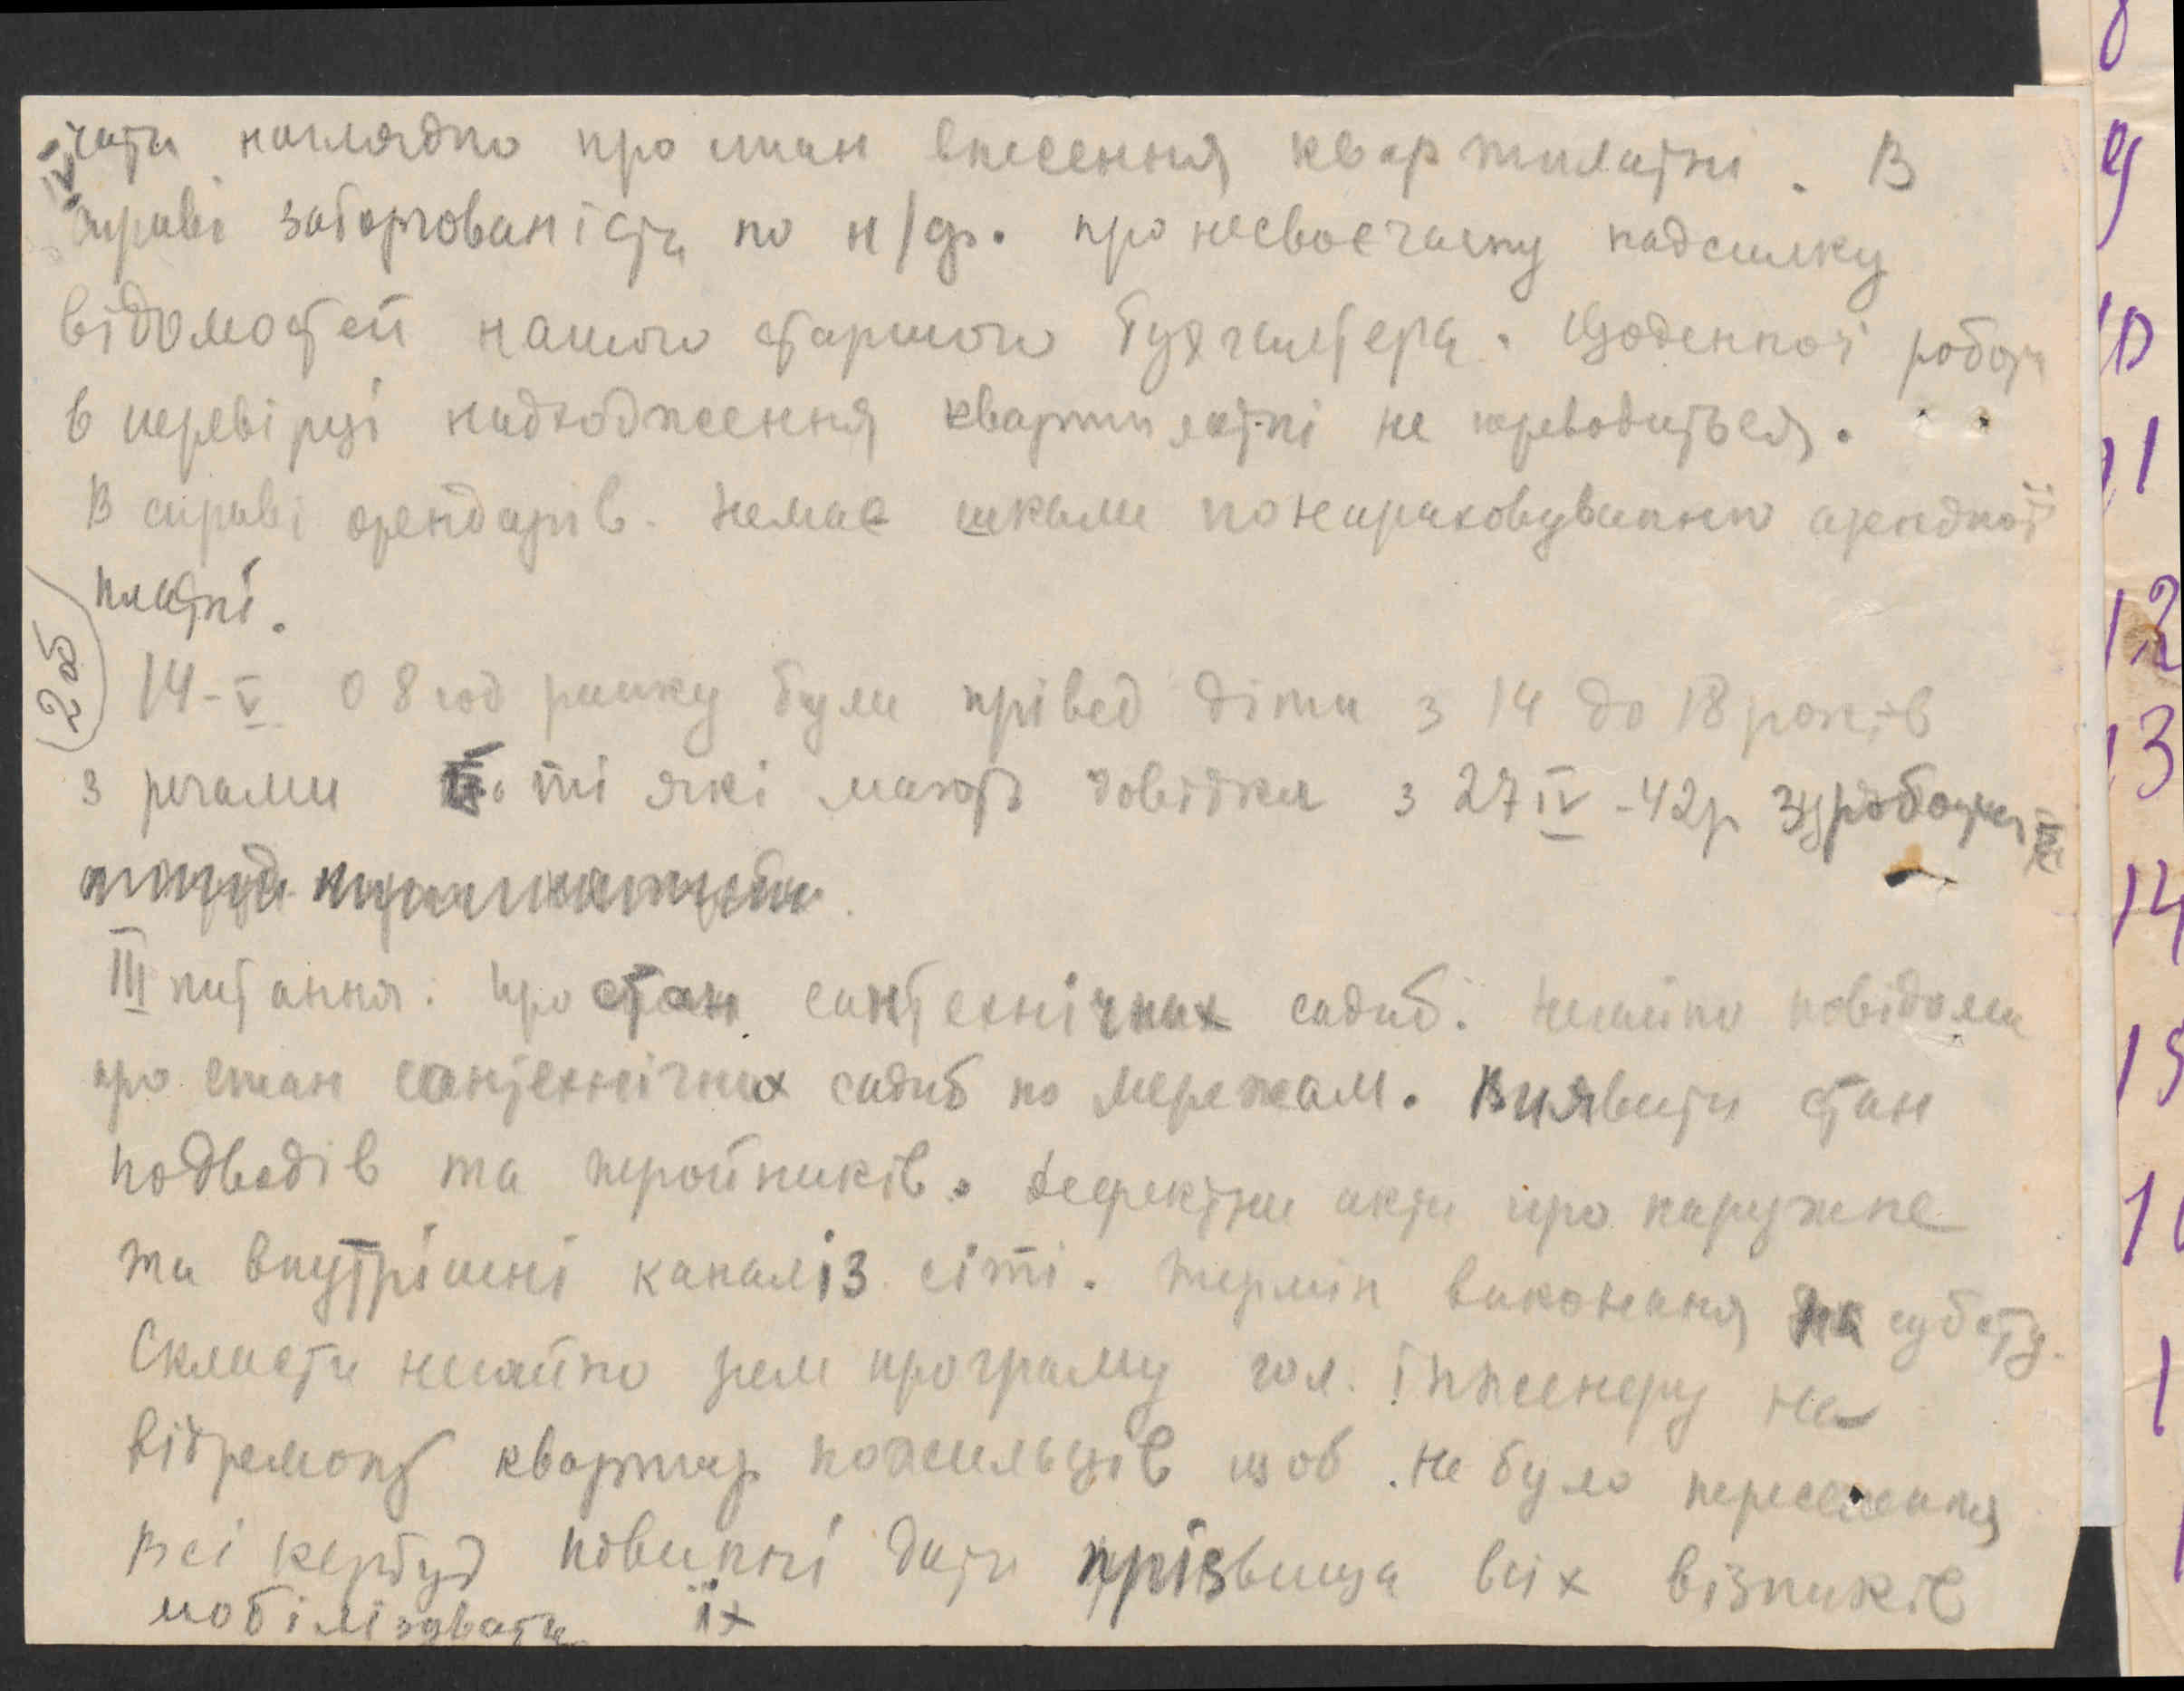 чати наглядно про стан внесення квартплатні. В
справі заборгованість по н/ф. про несвоєчасну надсилку
відомостей нашого старшого бухгалтера. Щоденної роботи
в перевірці надходження квартплатні не переводиться.
В справі орендарів. Немає шкали по нараховуванню арендної
платні.
2об
14-V о 8 год ранку були прівед діти з 14 до 18 років
з речами ті які мають довідки з 27 IV -42р
III питання: про стан сантехнічних садиб. Негайно повідоми
про стан сантехнічних садиб по мережам. Виявити стан
подводів та тройників. Дефектні акти про наружне
та внутрішні каналіз. сіті. Термін виконання на суботу.
Скласти негайно рем програму гол. інженеру на
відремонт квартир пожильців щоб не було переселення
Всі кербуд повинні дати прізвища всіх візників
мобілізувати їх
8
9
10
11
12
13
14
15
1
1